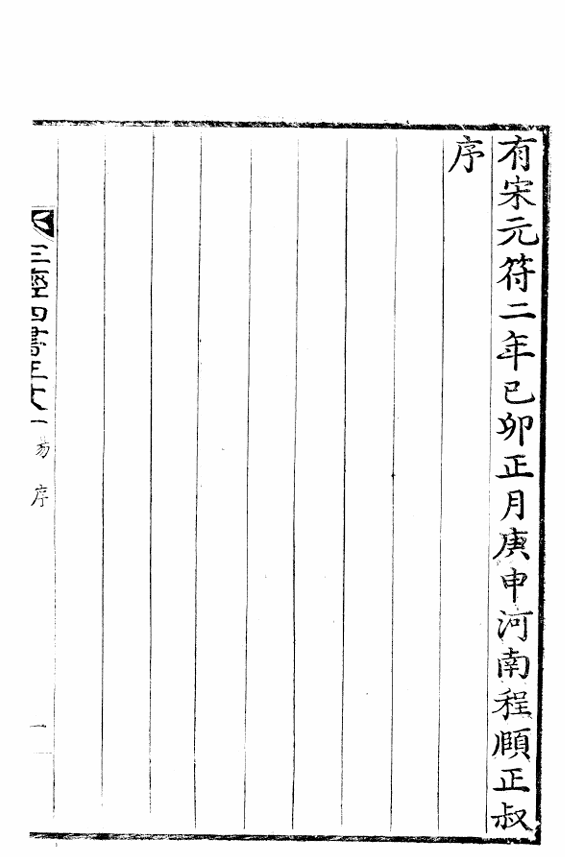 有宋元符二年已卯正月庚申河南程頥正叔
序
三經四書正文
一
易 序
一